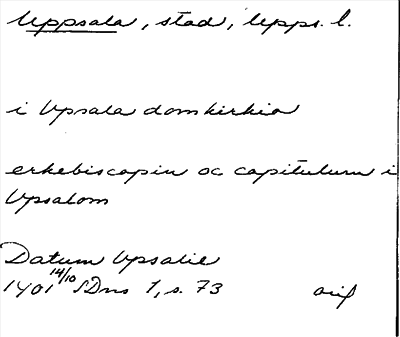 Uppsala, stad, Upps. l.
i Vpsala domkirkio
erkebiscopin oc capitulum i
Vpsalom
Datum Vpsalie
1401 14/10 SDns 1, s. 73 avs